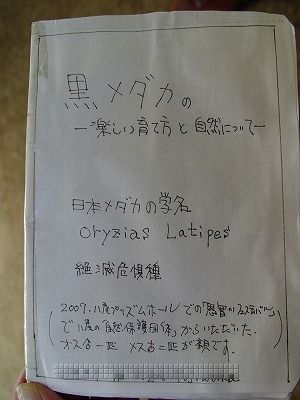 黒メダカの
―楽しい育て方と自然について―
日本メダカの学名
oryzias Latipes
絶滅危倶種
2007.八尾プリズムホールでの「恩智川フェスティバル」
で八尾の自然保護団体からいただいた.
オス各一匹 メス各二匹が親です.